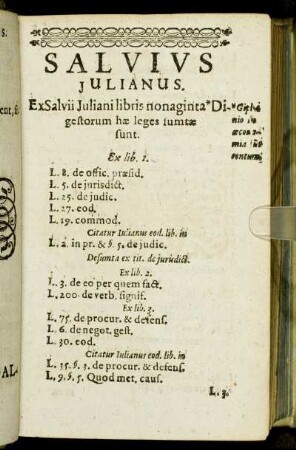 SALVIVS
JULIANUS.
Ex Salvii Juliani libris nonaginta* Di-
gestorum hæ leges sumtæ
sunt.
Ex lib. 1.
L. 8. de offic. præsid.
L. 5. de jurisdict.
L. 25. de judic.
L. 27. eod.
L. 19. commod.
Citatur Iulianus eod. lib. in
L. 2. in pr. & §. 5. de judic.
Desumta ex tit. de jurisdict.
Ex lib. 2.
L. 3. de eo per quem fact.
L. 200. de verb. signif.
Ex lib. 3.
L. 75. de procur. & defens.
L. 6. de negot. gest.
L. 30. eod.
Citatur Iulianus eod. lib. in
L. 35. §. 3. de procur. & defens.
L. 9. §. 5. Quod met. caus.
L. 3.
AL-